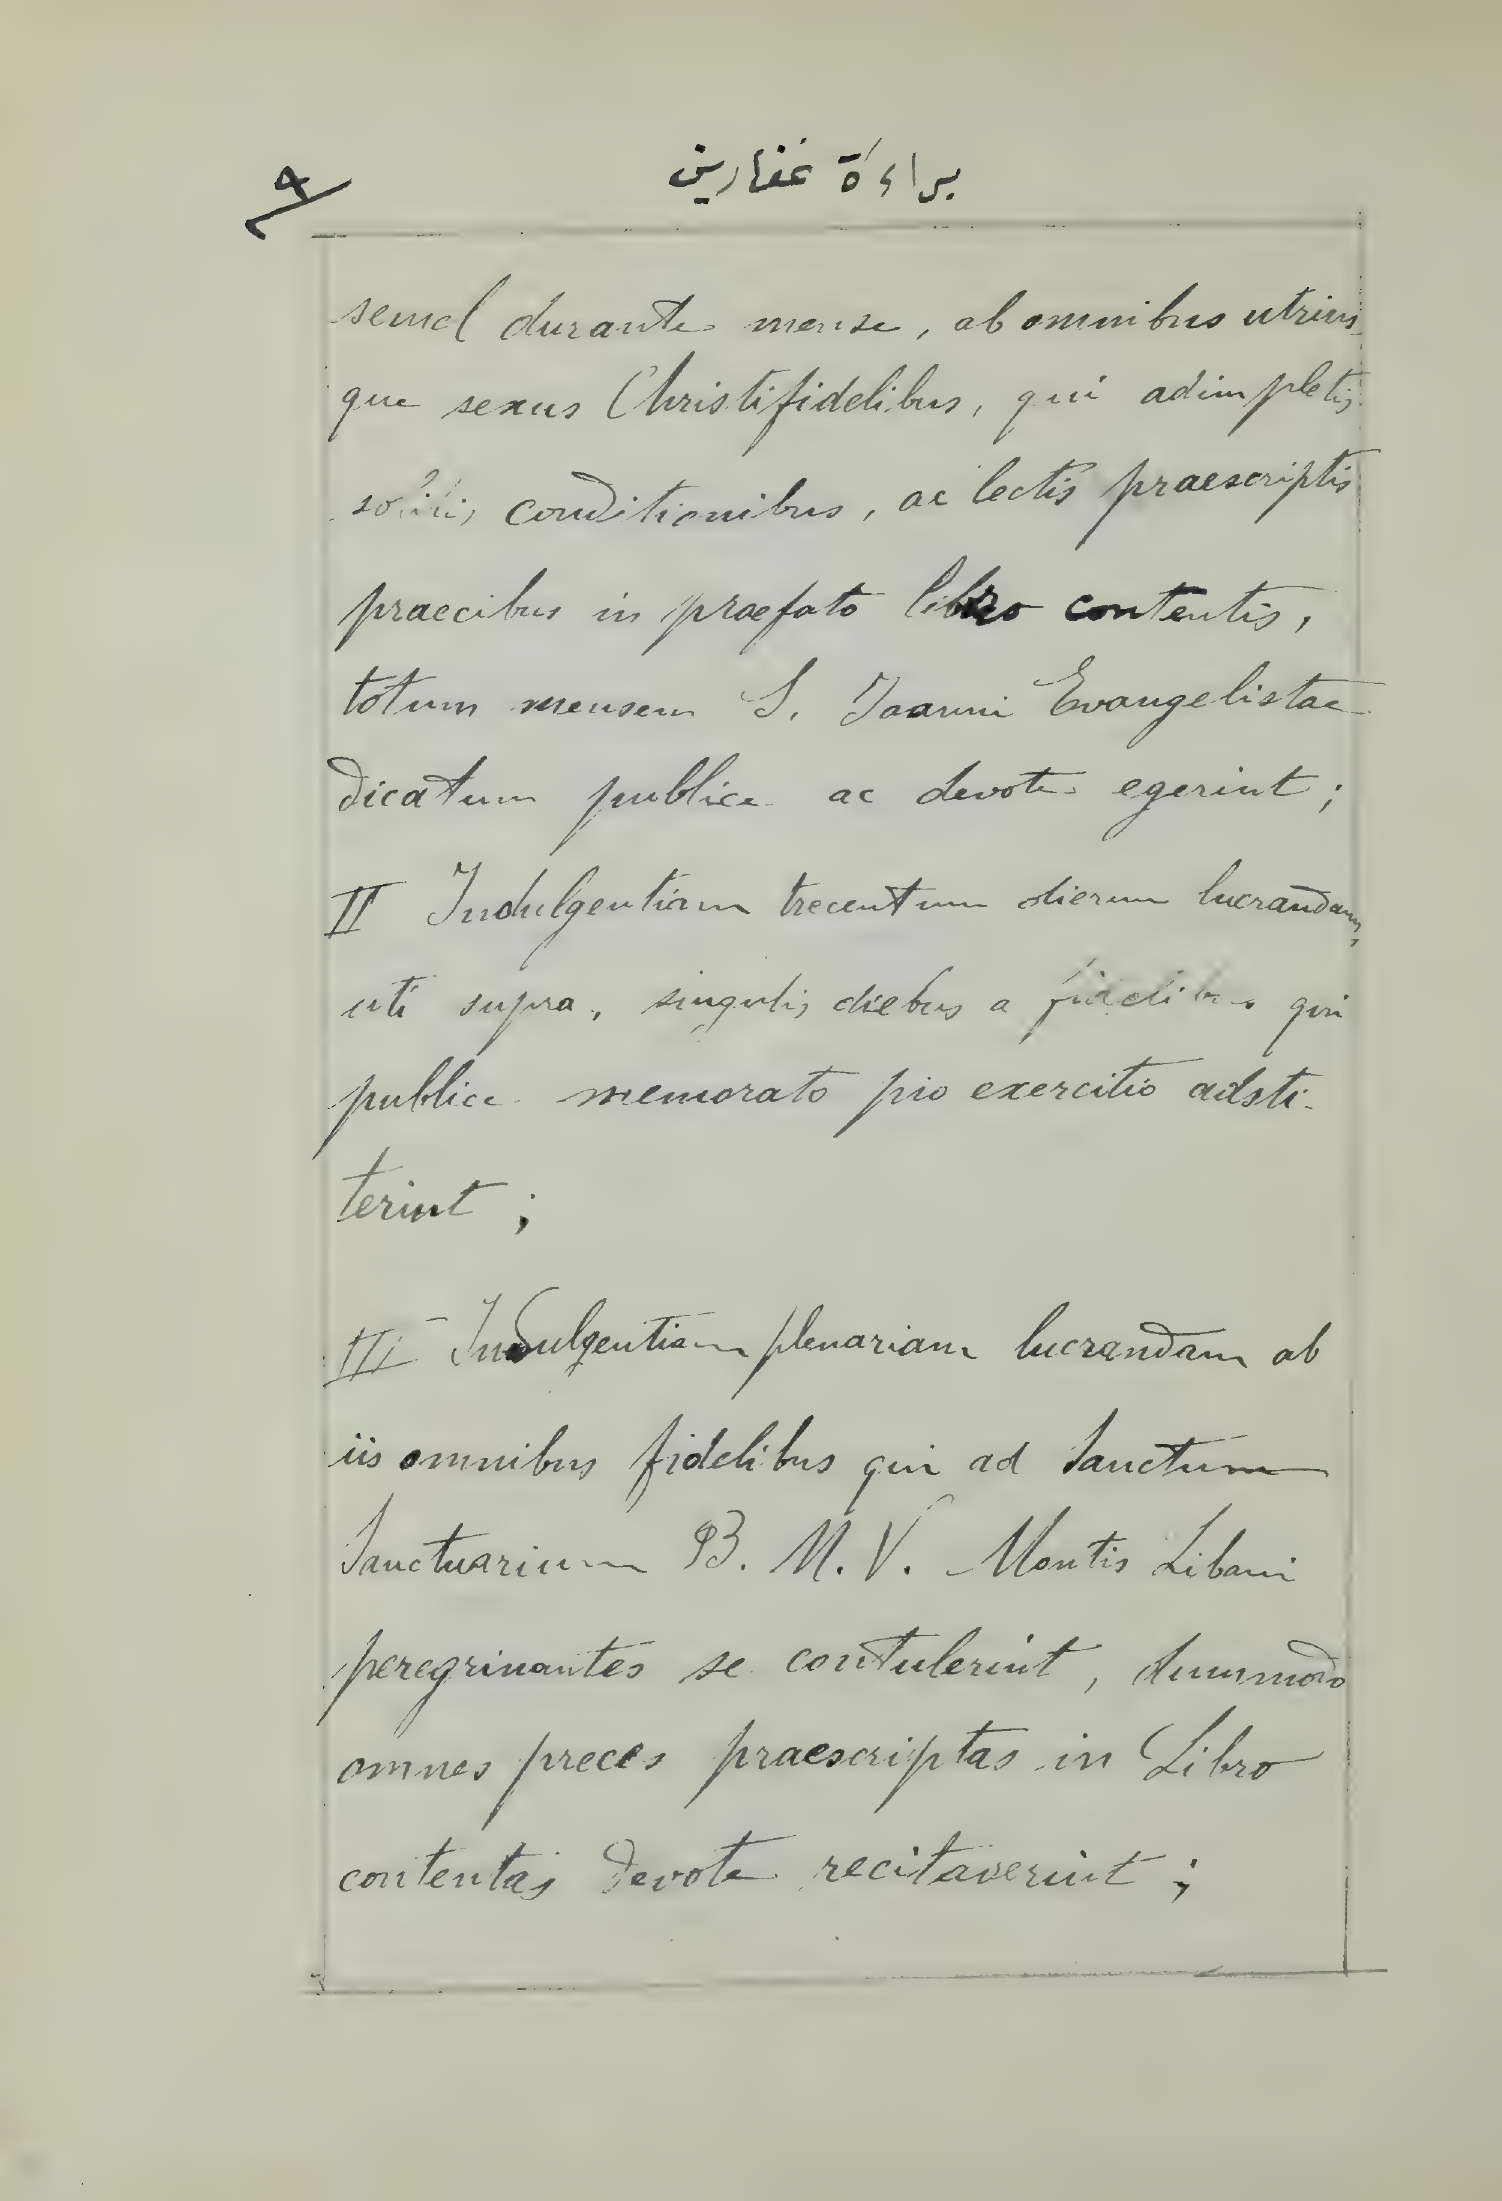 براءة غفارين
٩
semel durante mense, ab omnibus utrius
que sexus Christifidelibus, qui adimpletis
solitis conditionibus, ac lectis praescriptis
praecibus in praefato libro contentis,
totum mensem S. Joanni Evangelistae
dicatum publice ac devote egerint;
II Indulgentiam trecentum dierum lucrandam,
uti supra, singulis diebus a fidelibus qui
publice memorato pio exercitio adsti-
terint;
III Indulgentiam plenariam lucrandam ab
iis omnibus fidelibus qui ad Sanctum
Sanctuarium B. M. V. Montis Libani
peregrinantes se contulerint, dummodo
omnes preces praescriptas in Libro
contentas devote recitaverint;